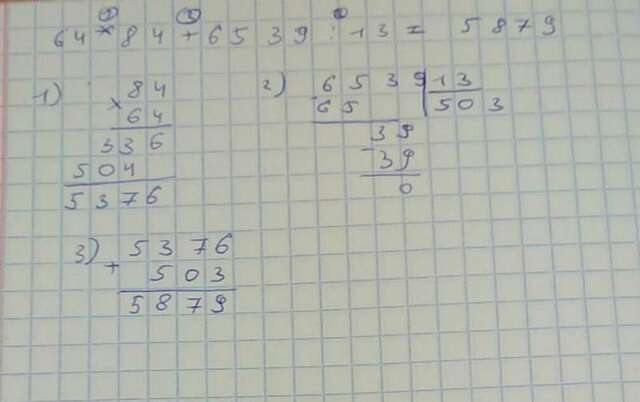 64 * 84 + 6539 : 13 = 5879
1) 84
× 64
336
504
5376
2) 6539 | 13
- 65 503
39
- 39
0
3) 5376
+ 503
5879